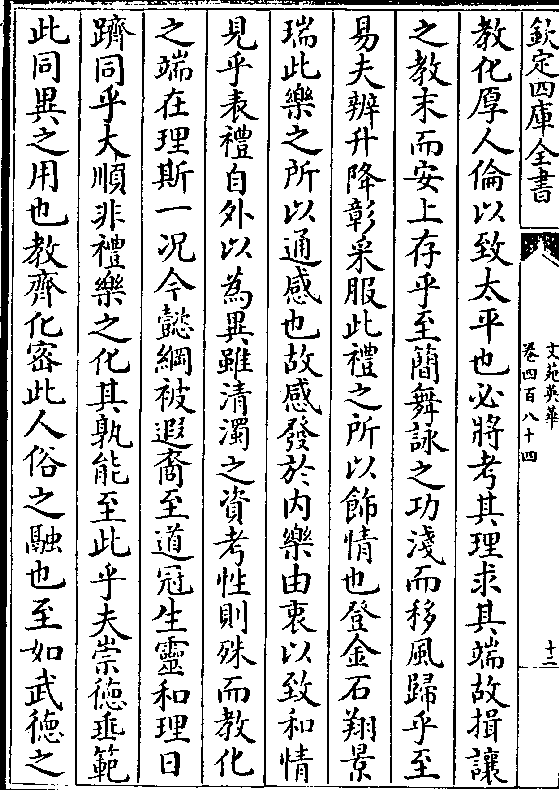 欽定四庫全書
文苑英華
卷四百八十四
十三
教化厚人倫以致太平也必將考其理求其端故揖讓
之教末而安上存乎至簡舞詠之功淺而移風歸乎至
易夫辨升降彰采服此禮之所以飾情也登金石翔景
瑞此樂之所以通感也故感發於内樂由衷以致和情
見乎表禮自外以為異雖清濁之資考性則殊而教化
之端在理斯一况今懿綱被遐裔至道冠生靈和理日
躋同乎大順非禮樂之化其孰能至此乎夫崇德垂範
此同異之用也教齊化密此人俗之融也至如武德之